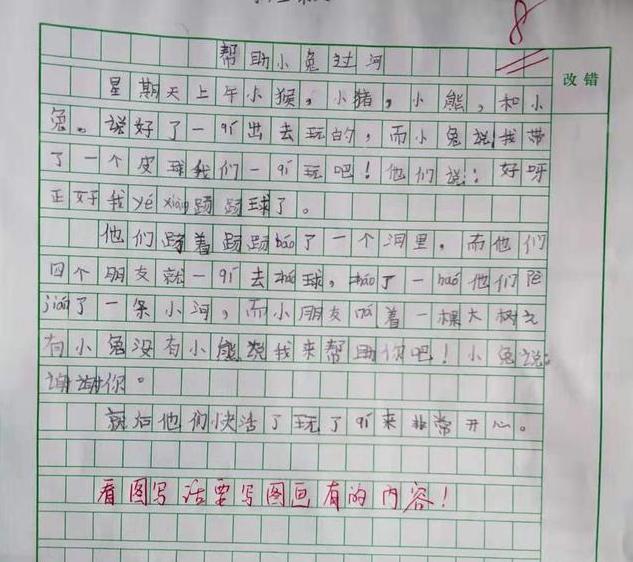 8
改错
帮助小兔过河
星期天上午小猴，小猪，小熊，和小
兔。说好了一qǐ出去玩的，而小兔说我带
了一个皮球我们一qǐ玩吧！他们说：好呀
正好我yé xiǎng踢踢球了。
他们踢着踢踢bào了一个洞里，而他们
四个朋友就一qǐ去球，了一bǎo他们
jiàn了一条小河，而小朋友着一棵大树
有小兔没有小熊说我来帮助你吧！小兔说：
谢谢你。
就后他们快活了玩了qǐ来非常开心。
看图写话要写图画有的内容！